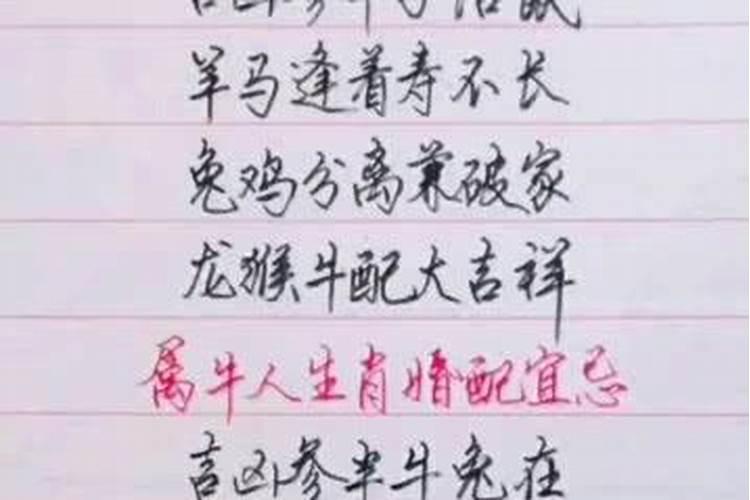 吉凶参半于
羊马逢着寿不长
兔鸡分离兼破家
龙猴牛配大吉祥
属牛人生肖婚配宜忌
吉凶参半牛兔在